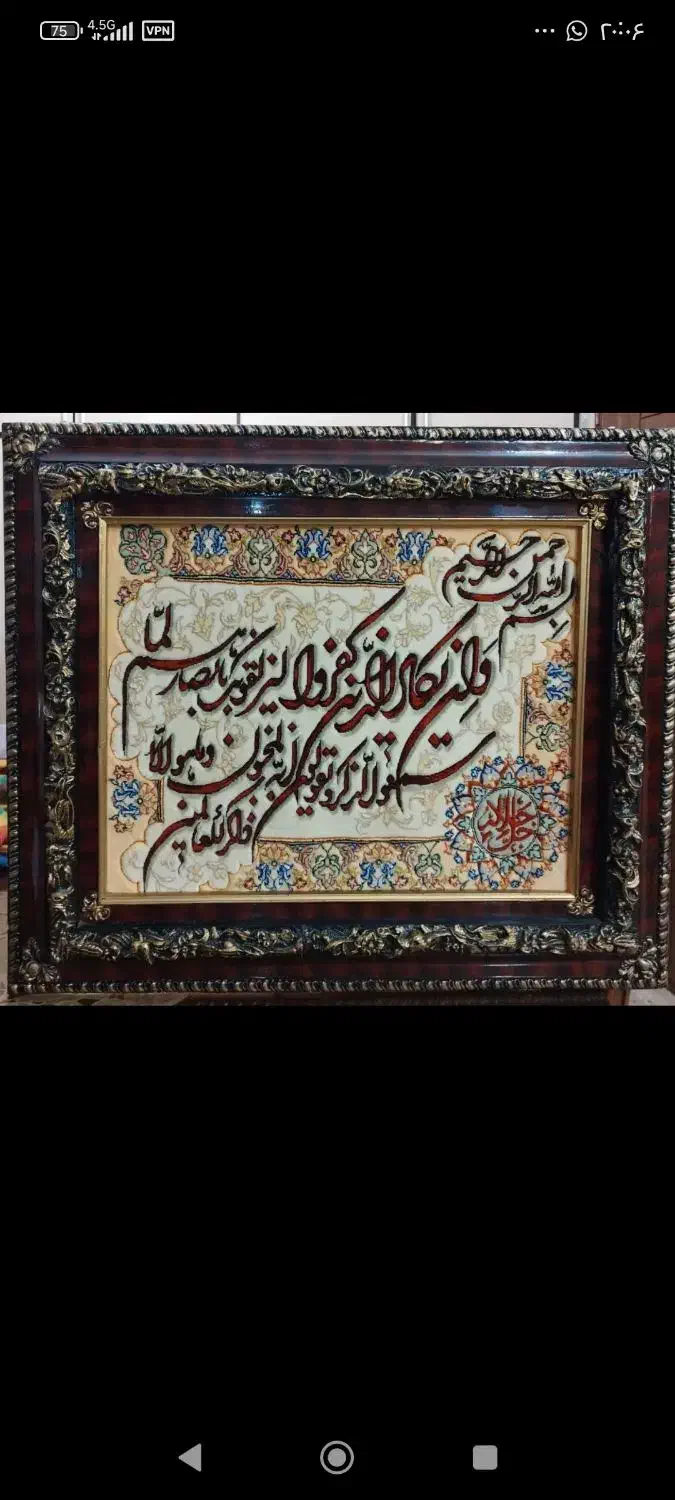 75 4.5G VPN ۲۰:۰۶
بسم الله الرحمن الرحیم
وَاِن یکاد الذین کفروا لیزلقونک بابصارهم لمّا
سمعوا الذکر و یقولون انه لمجنون و ما هو الّا
ذکر للعالمین
جل جلاله